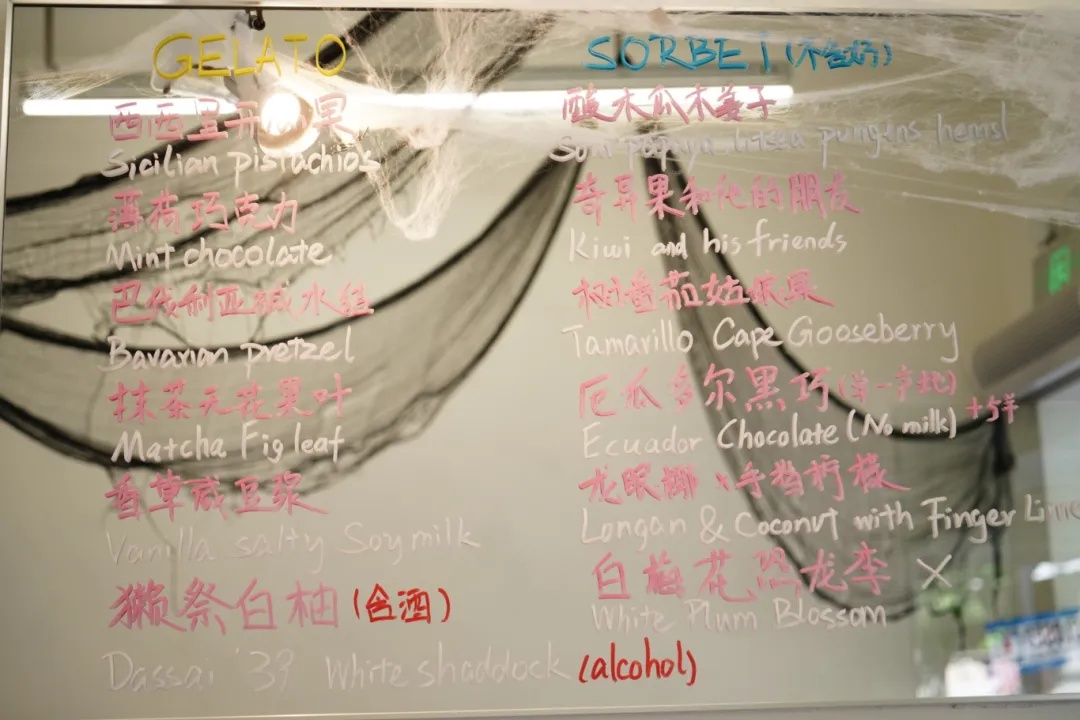 GELATO
西西里开心果
Sicilian pistachios
薄荷巧克力
Mint chocolate
巴伐利亚碱水结
Bavarian pretzel
抹茶无花果叶
Matcha Fig leaf
香草咸豆浆
Vanilla salty Soymilk
獭祭白柚(含酒)
Dassai '39 White shaddock (alcohol)
SORBET (不含奶)
酸木瓜木姜子
Sour papaya litsea pungens hemsl
奇异果和他的朋友
Kiwi and his friends
树番茄姑娘果
Tamavillo Cape Gooseberry
厄瓜多尔黑巧
Ecuador Chocolate (No milk) +5¥
龙眼椰 x 手指柠檬
Longan & Coconut with Finger Lime
白梅花恐龙李 ×
White Plum Blossom